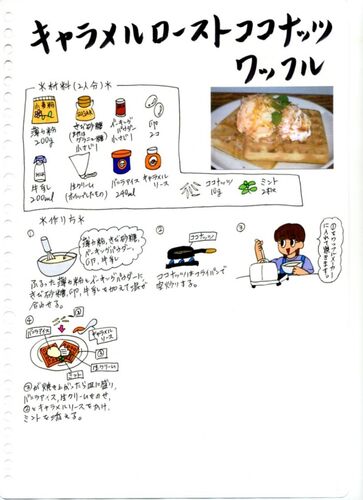 キャラメルローストココナッツ
ワッフル
*材料(2人分)*
小麦粉
SUGAR
薄力粉
200g
きび砂糖
または
グラニュー糖
小さじ1
ベーキング
パウダー
小さじ1
卵
2コ
牛乳
200ml
生クリーム
(ホイップしたもの)
バニラアイス
240ml
キャラメル
ソース
ココナッツ
10g
ミント
2枚
*作り方*
①
薄力粉、きび砂糖、
ベーキングパウダー、
卵、牛乳
ふるった薄力粉とベーキングパウダーに、
きび砂糖、卵、牛乳を加えて混ぜ
合わせる。
②
ココナッツ
ココナッツはフライパンで
空炒りする。
③
①をワッフルメーカー
に入れて焼きます!
④
バニラアイス
②
キャラメル
ソース
③
ミント
生クリーム
③が焼き上がったら皿に盛り、
バニラアイス、生クリームをのせ、
②とキャラメルソースをかけ、
ミントを添える。